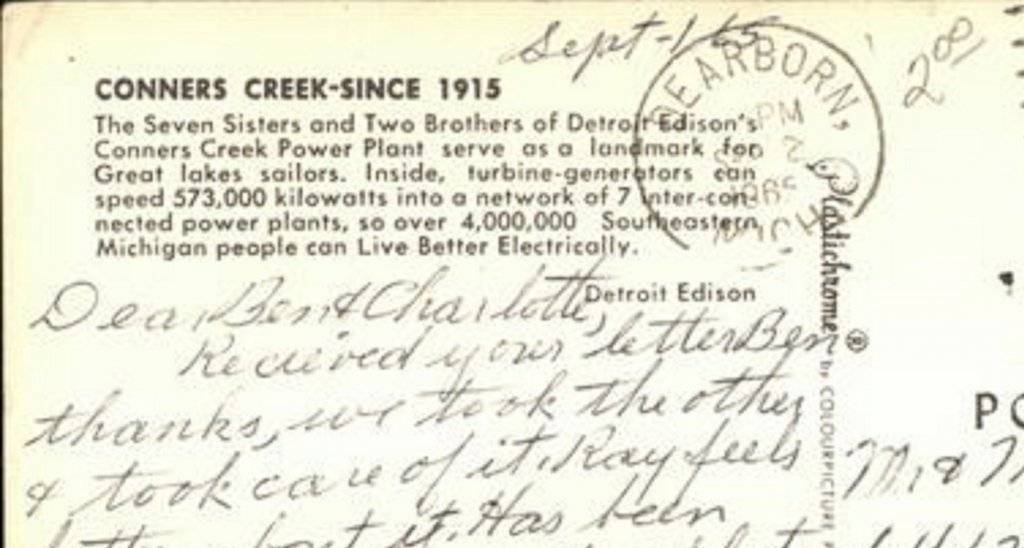 Sept-1 65
2.00
DEARBORN,
PM
SEP 2
1965
MICH
CONNERS CREEK-SINCE 1915
The Seven Sisters and Two Brothers of Detroit Edison's
Conners Creek Power Plant serve as a landmark for
Great lakes sailors. Inside, turbine-generators can
speed 573,000 kilowatts into a network of 7 inter-con-
nected power plants, so over 4,000,000 Southeastern
Michigan people can Live Better Electrically.
Detroit Edison
Dear Ben & Charlotte,
Recieved your letter Ben
thanks, we took the other
& took care of it. Ray feels
about it. Has been
Plastichrome®
by COLOURPICTURE
PO
M. & M